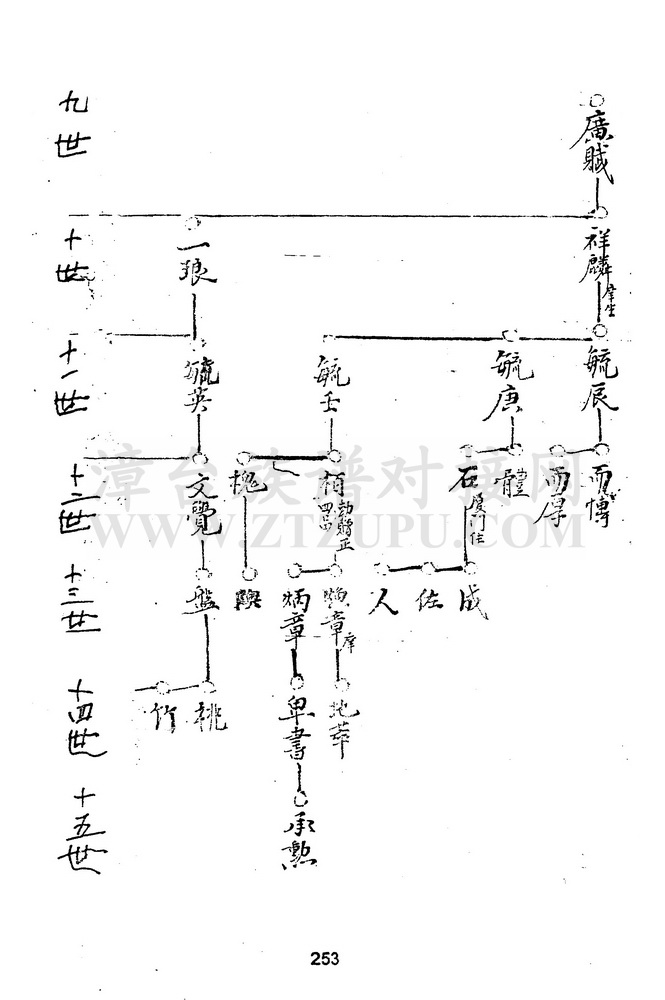 九世
廣賦
十世
祥麟 庠生
一琅
十一世
毓辰
毓唐
毓壬
毓英
十二世
而博
而厚
體
石 厦門住
植
槐
文覺
十三世
成
佐
人
煥章 庠
炳章
與
盤
十四世
地萃
卑書
桃
竹
十五世
承勲
漳台族谱对接网
WWW.ZTZUPU.COM
253